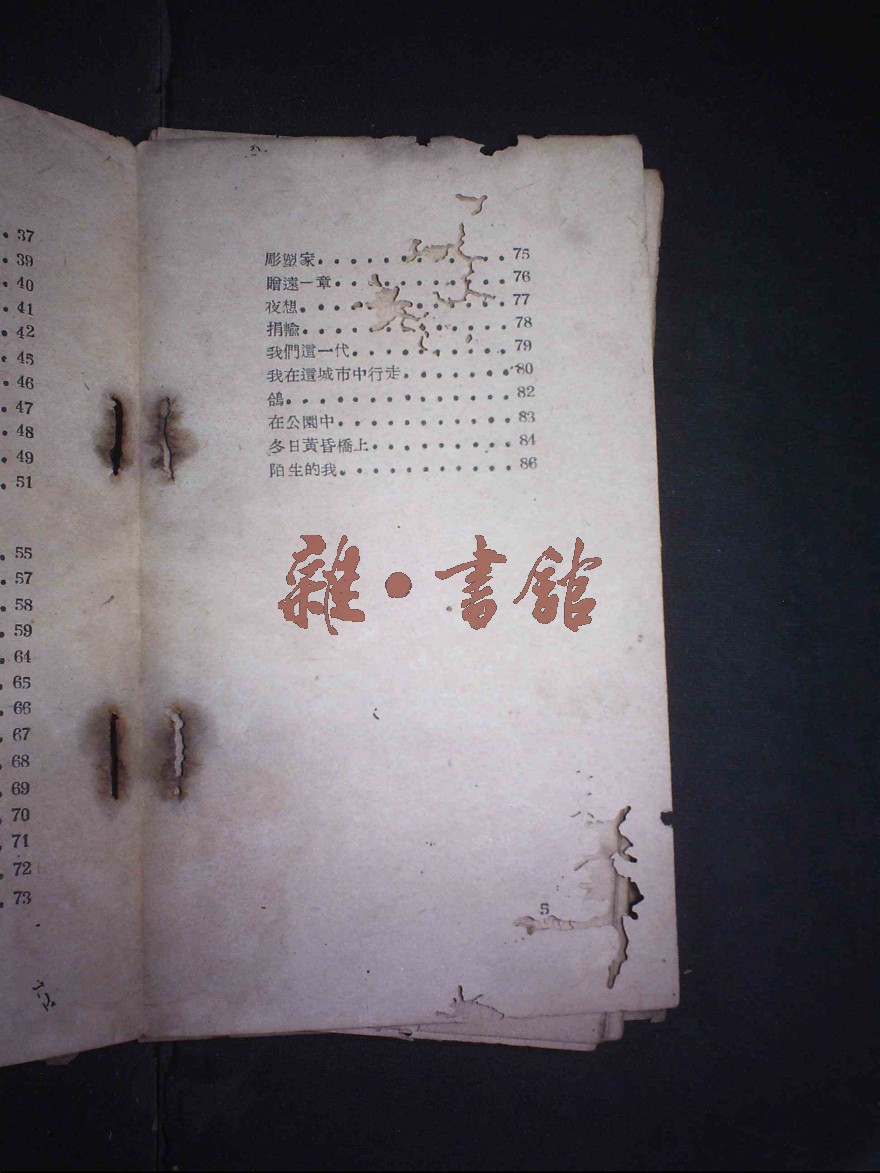 37
39
40
41
42
45
46
47
48
49
51
55
57
58
59
64
65
66
67
68
69
70
71
72
73
彫塑家 75
贈遠一章 76
夜想 77
捐輸 78
我們這一代 79
我在這城市中行走 80
鴿 82
在公園中 83
冬日黃昏橋上 84
陌生的我 86
雜·書館
5